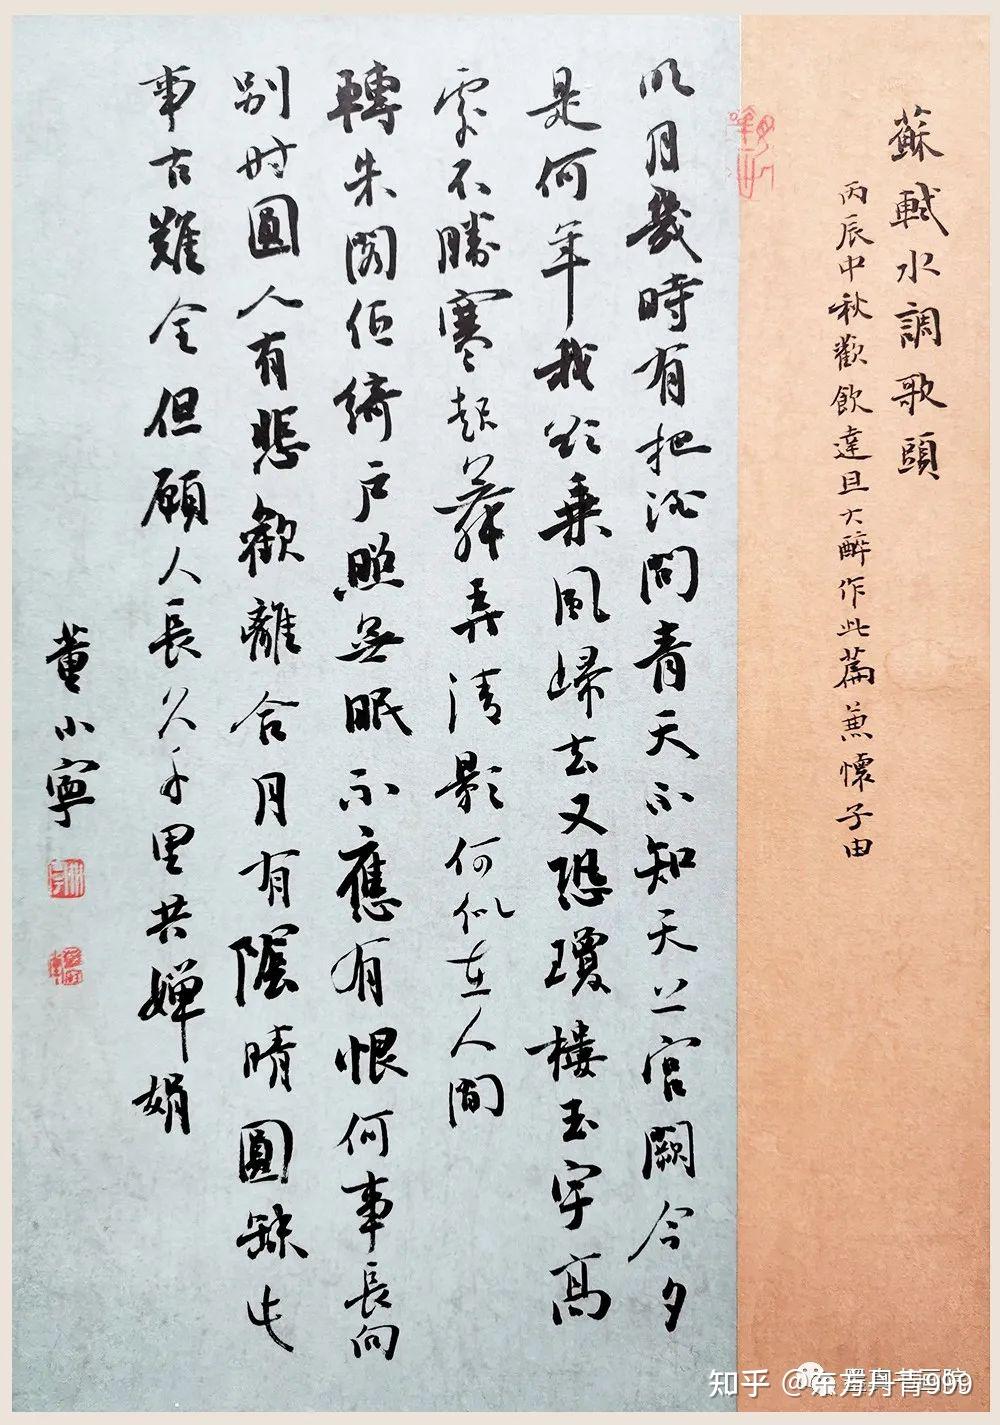 蘇軾水調歌頭
丙辰中秋歡飲達旦大醉作此篇兼懷子由
明月幾時有把酒問青天不知天上宮闕今夕
是何年我欲乘風歸去又恐瓊樓玉宇高
處不勝寒起舞弄清影何似在人間
轉朱閣低綺戶照無眠不應有恨何事長向
別時圓人有悲歡離合月有陰晴圓缺此
事古難全但願人長久千里共嬋娟
董小寧
知乎 @东方丹青999